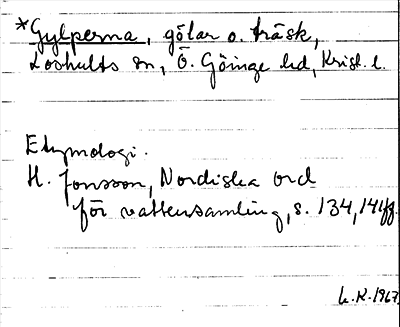 *Gylperna, gölar o. träsk,
Loshults sn, Ö. Göinge hd, Krist. l.
Etymologi.
H. Jonsson, Nordiska ord
för vattensamling, s. 134, 141ff.
L.K. 1967